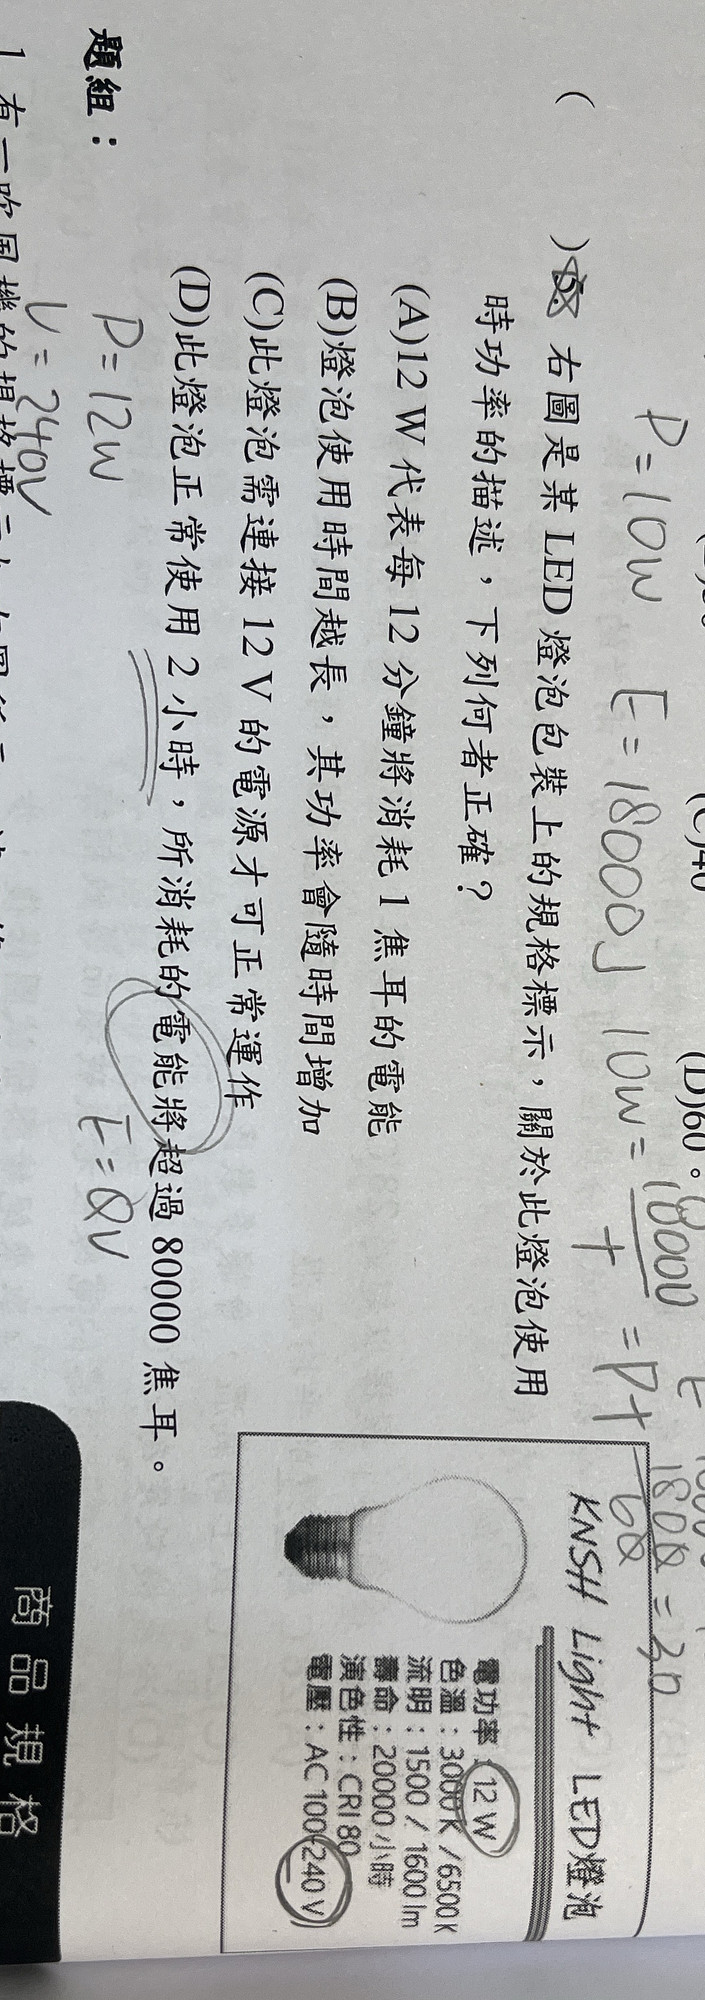 (D)60。
P=10W E=18000J 10W=18000/t =Pt
1800/60=30
( )5. 右圖是某 LED 燈泡包裝上的規格標示，關於此燈泡使用
時功率的描述，下列何者正確？
(A)12 W 代表每 12 分鐘將消耗 1 焦耳的電能
(B)燈泡使用時間越長，其功率會隨時間增加
(C)此燈泡需連接 12 V 的電源才可正常運作
(D)此燈泡正常使用 2 小時，所消耗的電能將超過 80000 焦耳。
P=12W E=QV
V=240V
KNSH Light LED燈泡
電功率：12 W
色溫：3000K /6500K
流明：1500 / 1600 lm
壽命：20000 小時
演色性：CRI 80
電壓：AC 100-240 V
題組：
1. 有一吹風機的規格標示
商品規格